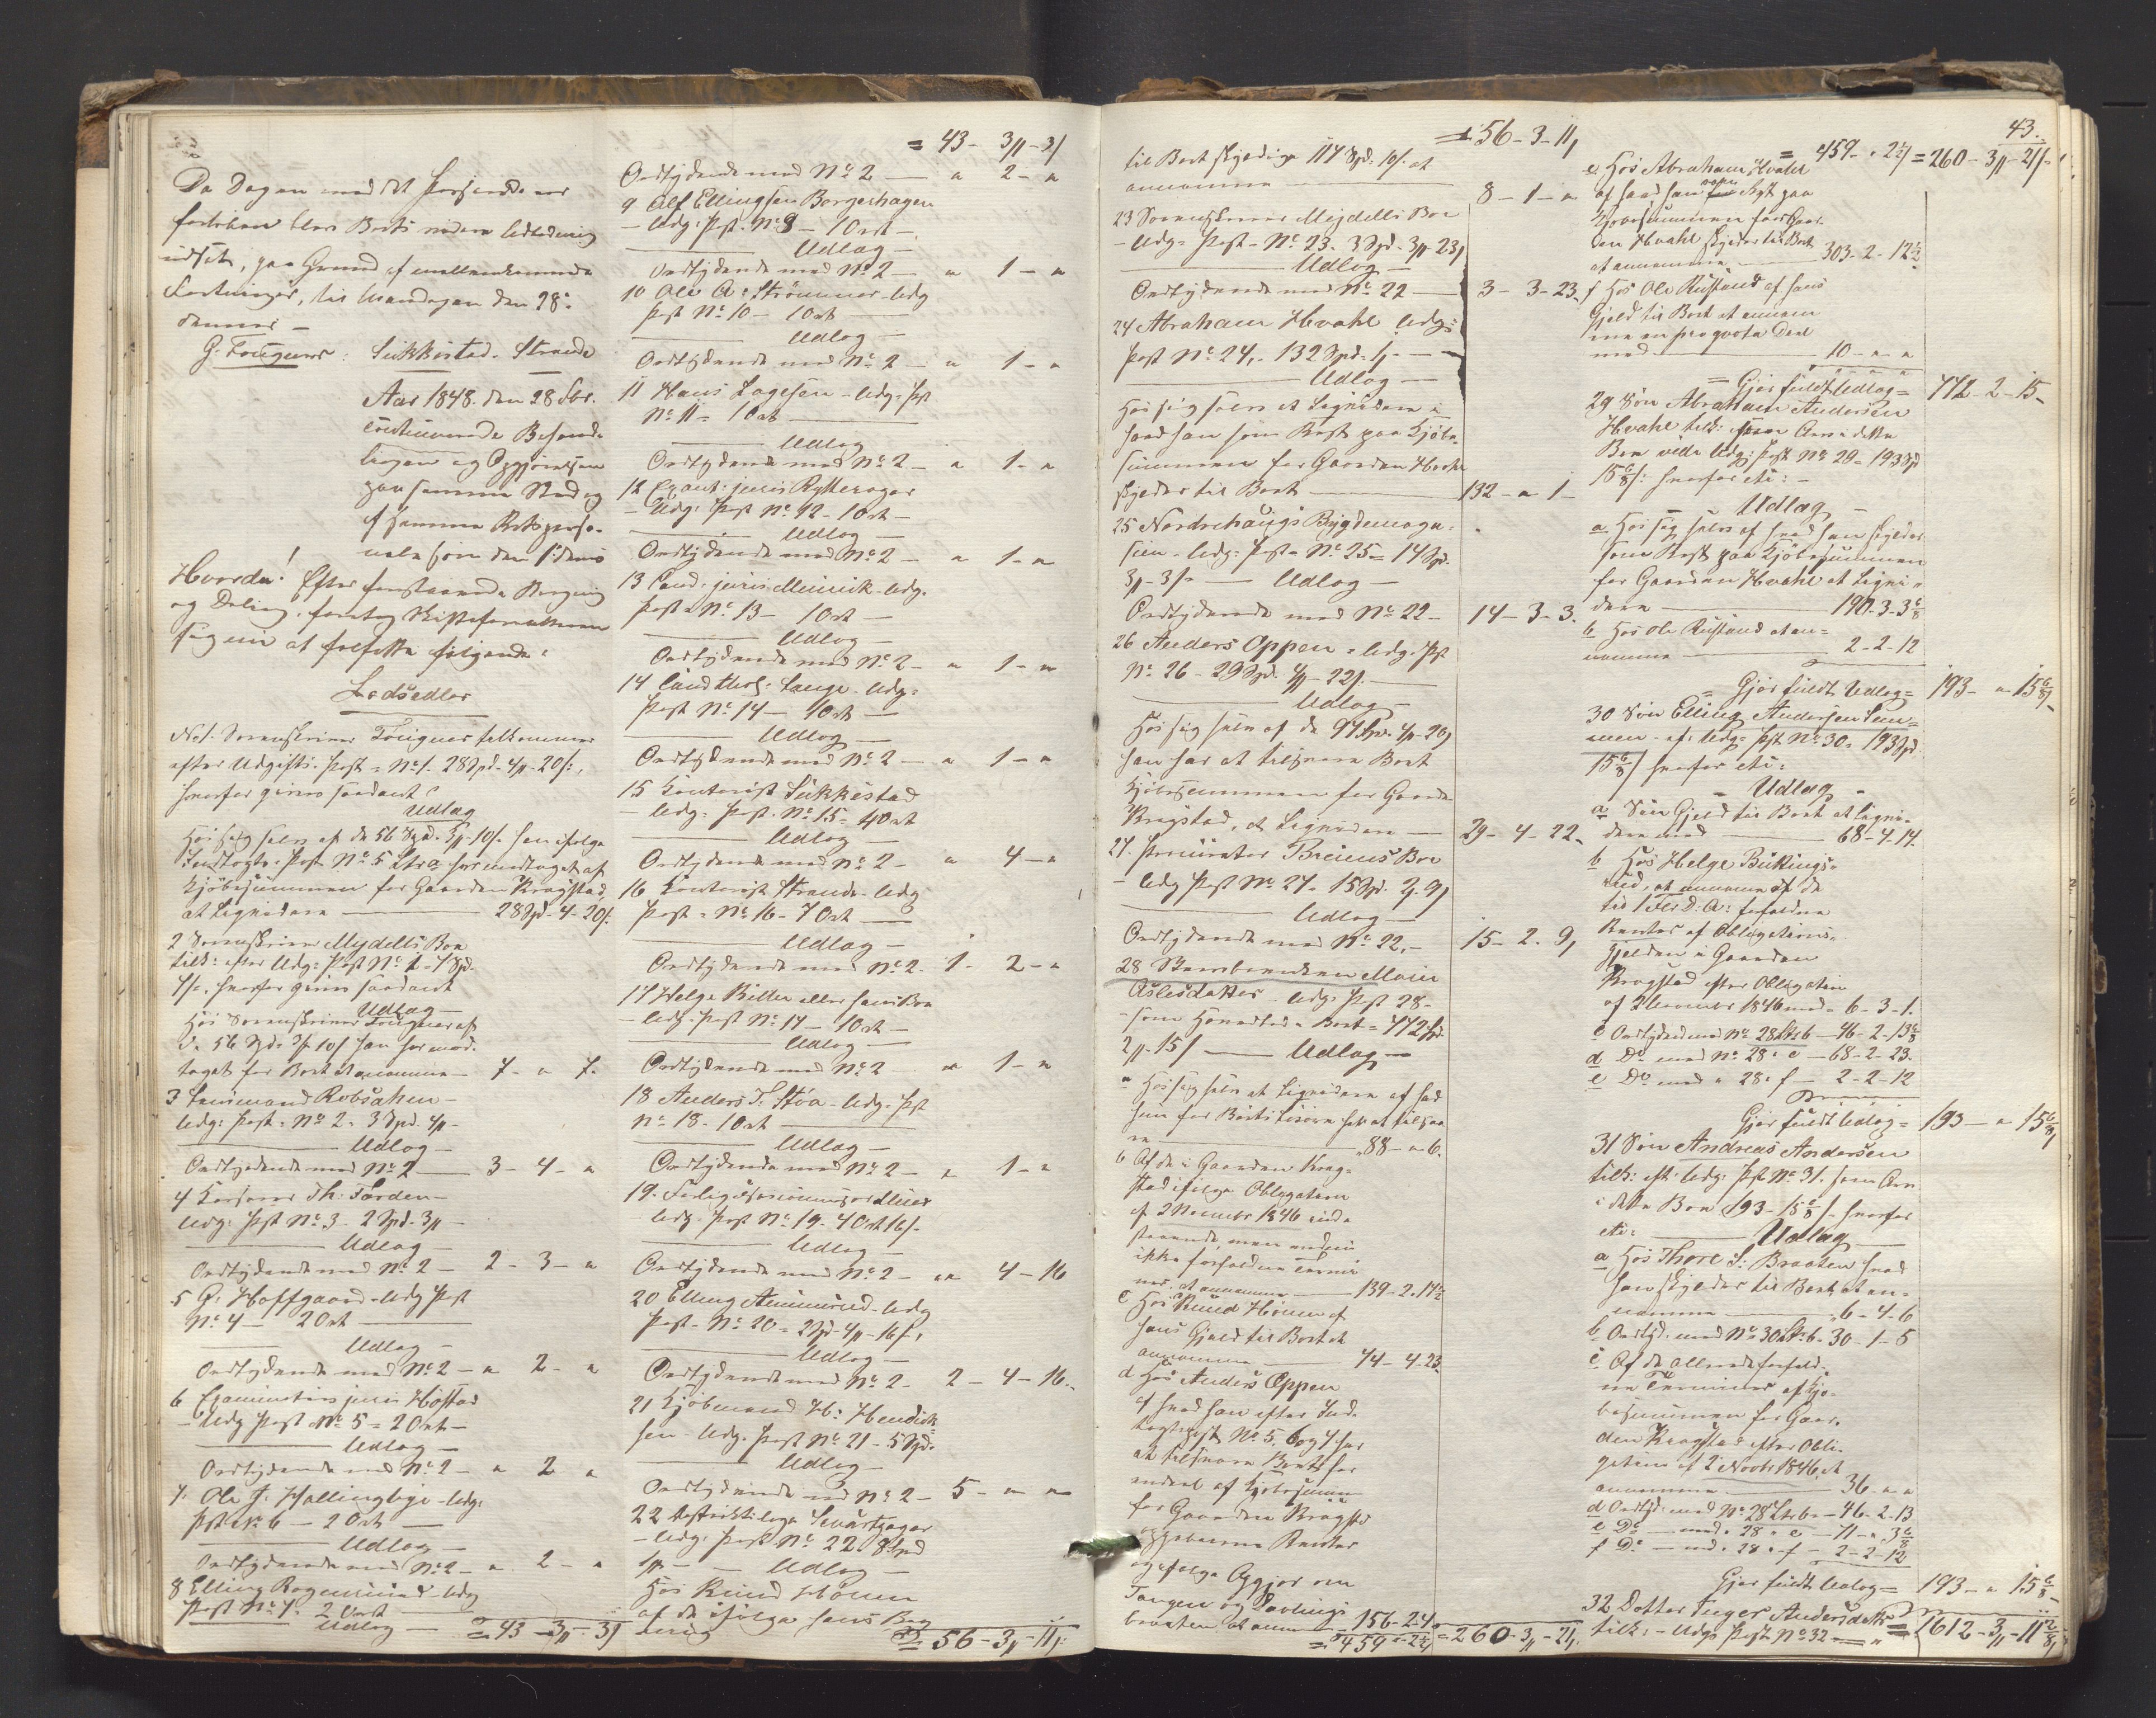 Da Dagen med det Passerede var
forløben blev Boets videre Udlodning
udsat, paa Grund af mellemkommende
Forretninger, til Mandagen den 28:
dennes –
G. Fougner: Sukkestad. Strande
Aar 1848. den 28 Fbr.
continuerede Behand-
lingen og Opgjørelsen
paa samme Sted og
af samme Retsperso-
nale som den 1: dennes
Hvorda! Efter foranstaaende Beregning
og Deling, foretog Skifteforvalteren
sig nu at forfatte følgende:
Lodsedler
No 1. Sorenskriver Fougner tilkommer
efter Udgifts-Post = No 1. 28 Spd. 4 # 20 /:,
hvorfor gives saadant
Udlag
Hos sig selv af de 56 Spd. 3 # 10 /: han ifølge
Indtægts-Post No 5 Litr a har modtaget af
Kjøbesummen for Gaarden Kragstad,
at Liqvidere — 28 Spd- 4- 20 /:
2 Sorenskriver Mydells Boe
tilk: efter Udg: Post No 1 = 7 Spd.
7/:, hvorfor gives saadant
Udlag —
Hos Sorenskriver Fougner af
de 56 Spd. 3 # 10 / han har mod-
taget for Boet at annamme — 7- „ 7.
3 Lensmand Robsahm —
Udg: Post = No 2 = 3 Spd. 4 # –
Udlag —
Overtydende med No 2 — 3 - 4 - „
4 Th: Torden —
Udg: Post No 3 - 2 Spd. 3 # –
Udlag —
Overtydende med No 2 — 2 - 3 - „
5 G: Hoffgaard — Udg Post
No 4 — 2 Ort —
Udlag —
Overtydende med No 2 — „ 2 - „
6 Examinatus juris Hofstad
— Udg Post No 5 = 2 Ort —
Udlag —
Overtydende med No 2 — „ 2 „
7. Ole J: Hallingbye — Udg:
Post No 6 — 2 Ort —
Udlag —
Overtydende med No 2 — „ 2 - „
8 Elling Rognerud Udg
Post No 7. 2 Ort —
Udlag — = 43 - 3 # - 3 /
= 43 - 3 # - 3 /
Overtydende med No 2 — „ 2 - „
9 Alf Ellingsen Borgershagen
— Udg: Post. No 8 — 1 Ort —
Udlag —
Overtydende med No 2 — „ 1 - „
10 Ole A: Strømmer - Udg
Post No 10 — 1 Ort —
Udlag —
Overtydende med No 2 — „ 1 - „
11 Hans Lagesen — Udg: Post
No 11 = 1 Ort —
Udlag
Overtydende med No 2 — „ 1 - „
12 Exami: juris Rytterager
— Udg: Post No 12 - 1 Ort —
Udlag —
Overtydende med No 2 — „ 1 - „
13 Cand: juris Meinik — Udg.
Post = No 13 — 1 Ort —
Udlag —
Overtydende med No 2 — „ 1 - „
14 Cand theol: Lange — Udg:
Post No 14 — 1 Ort —
Udlag —
Overtydende med No 2 — „ 1 - „
15 Contorist Sukkestad
— Udg: Post. No 15 - 4 Ort
Udlag —
Overtydende med No 2 — „ 4 - „
16 Contorist Strande - Udg
Post = No 16 - 7 Ort —
Udlag —
Overtydende med No 2. 1- 2 - „
17 Helge Bitter eller hans Boe
— Udg. Post No 17 — 1 Ort —
Udlag —
Overtydende med No 2 „ 1 - „
18 Anders T. Støa — Udg: Post
No 18 - 1 Ort —
Udlag —
Overtydende med No 2 — „ 1 - „
19.
Udg: Post No 19 - 4 Ort 16 /:
Udlag —
Overtydende med No 2 — „ 4 - 16
20 Elling Ammerud - Udg
Post - No 20 = 2 Spd - 4 # - 16 /:,
Udlag —
Overtydende med No 2 - 2 - 4 - 16.
21 Kjøbmand H: Hendrik-
sen - Udg. Post No 21 - 5 Spd.
Udlag —
Overtydende med No 2 — 5 - „ „
22 Distriktslæge Schwartzager
— Udg: Post No 22 - 8 Spd
1 # — Udlag —
Hos Knud Hønen
af de ifølge hans
= 56 - 3 # - 11 /:
= 56 - 3 - 11 /
til Boet skyldige 114 Spd. 10 /. at
annamme — 8 - 1 - „
23 Sorenskriver Mydells Boe
— Udg = Post - No 23 - 3 Spd - 3 # 23 /
Udlag —
Overtydende med No 22 — 3 - 3 - 23.
24 Abraham Hvahl Udg:
Post No 24, - 132 Spd. 1/ —
Udlag —
Hos sig selv at Liqvidere i
hvad han som Rest paa Kjøbe-
summen for Gaarden Hvahl
skylder til Boet — 132 - „ 1 –
25 Norderhaugs Bygdemaga-
sin - Udg: Post = No 25 = 14 Spd.
3 # - 3 /: — Udlag —
Overtydende med No 22 — 14 - 3 - 3.
26 Anders Oppen = Udg. Post
No 26 - 29 Spd. 4 # - 22 /. —
Udlag —
Hos sig selv af de 94 Spd. 4 # - 20 /
han har at tilsvare Boet
Kjøbesummen for Gaarden
Kragstad, at Liqvidere — 29 - 4 - 22.
27. Procurator Breiens Boe
— Udg Post No 27 - 15 Spd. 2. 9 /
Udlag —
Overtydende med No 22. — 15 - 2. 9 /
28 Stervboenken Marie
Aslesdatter — Udg: Post 28 -
- som Hovedlod = Boet = 772 Spd.
2 # - 15 / — Udlag —
a Hos sig selv at Liqvidere af hvad
hun for Boets Løsøre har at tilsva-
re — 88 - „ 6.
b Af de i Gaarden Krag-
stad ifølge Obligation
af 2 November 1846 inde-
staaende, men endnu
ikke forfaldne Termi-
ner, at annamme — 139 - 2. 14
c Hos Knud Hønen af
hans Gjæld til Boet at
annamme — 74 - 4 - 23.
d Hos Anders Oppen
af hvad han efter Ind-
tægtspost No 5, 6 og 7 har
at tilsvare Boet for
endeel af Kjøbesummen
for Gaarden Kragstad
Renter
ifølge Opgjør om
Tangen og
braaten, at annm — 156 - 2. 4
= 459 - „ 2 = 260 - 3 # - 21 /.
43.
= 459 - „ 2 / = 260 - 3 # - 21 /
e Hos Abraham Hvahl
af hvad han som Rest paa
Kjøbesummen for Gaar-
den Hvahl skylder til Boet
at annamme — 303 - 2 - 12
f Hos Ole Rustand af hans
Gjæld til Boet at annam-
me en proqvota Deel
med — 10 - „ „
= Gjør fuldt Udlag = 772 - 2 - 15 –
29 Søn Abraham Andersen
Hvahl tilk: som Arv i dette
Boe vide Udg: Post No 29 = 193 Spd
15 6/8 /: hvorfor etc: —
Udlag —
a. Hos sig selv af hvad han skylder
som Rest paa Kjøbesummen
for Gaarden Hvahl at Liqvi-
dere — 190 - 3 - 3 6/8
b Hos Ole Rustand at an-
namme — 2 - 2 - 12
= Gjør fuldt Udlag = 193 - „ 15 6/8 /
30 Søn Elling Andersen Sem-
men - af: Udg = Post No 30 = 193 Spd
15 6/8 / hvorfor etc:
- Udlag -
a Sin Gjæld til Boet at Liqvi-
dere med — 68 - 4 - 14.
b Hos Helge Bukings-
rud, at annamme af de
til 1 Febr D: A: forfaldne
Renter af Obligations-
gjælden i Gaarden
Kragstad efter Obligation
af 2 November 1846 med = 6 - 3 - 1.
c Overtydende med No 28 Litr b — 46 - 2 - 13 6/8
d Do med No 28 : c — 68 - 2 - 23.
e Do med „ 28 : f — 2 - 2 - 12
Gjør fuldt Udlag = 193 - „ 15 6/8 /
31 Søn Andreas Andersen
tilk: eft: Udg: Post No 31. som Arv
i dette Boe 193 - 15 6/8 / - hvorfor
etc: — Udlag
a Hos Thore S: Braaten hvad
han skylder til Boet at an-
namme — 6 - 4 - 6
b Overtyd: med No 30 Litr b - 30 - 1 - 5
c Af de allerede forfald-
ne Terminer af Kjø-
besummen for Gaar-
den Kragstad efter Obli-
gation af 2 Novbr 1846 at
annamme — 36 - „ „
d Overtyd: med No 28 Litr b — 46 - 2 - 13
e Do — med „ 28 „ c — 71 - „ 3 6/8
f Do — med „ 28 „ f — 2 - 2 - 12
Gjør fuldt Udlag = 193 - „ 15 6/8
32 Datter Inger Andersdatter
tilk: - Udg: Post No 32 — = 1612 - 3 # - 11 2/8 /